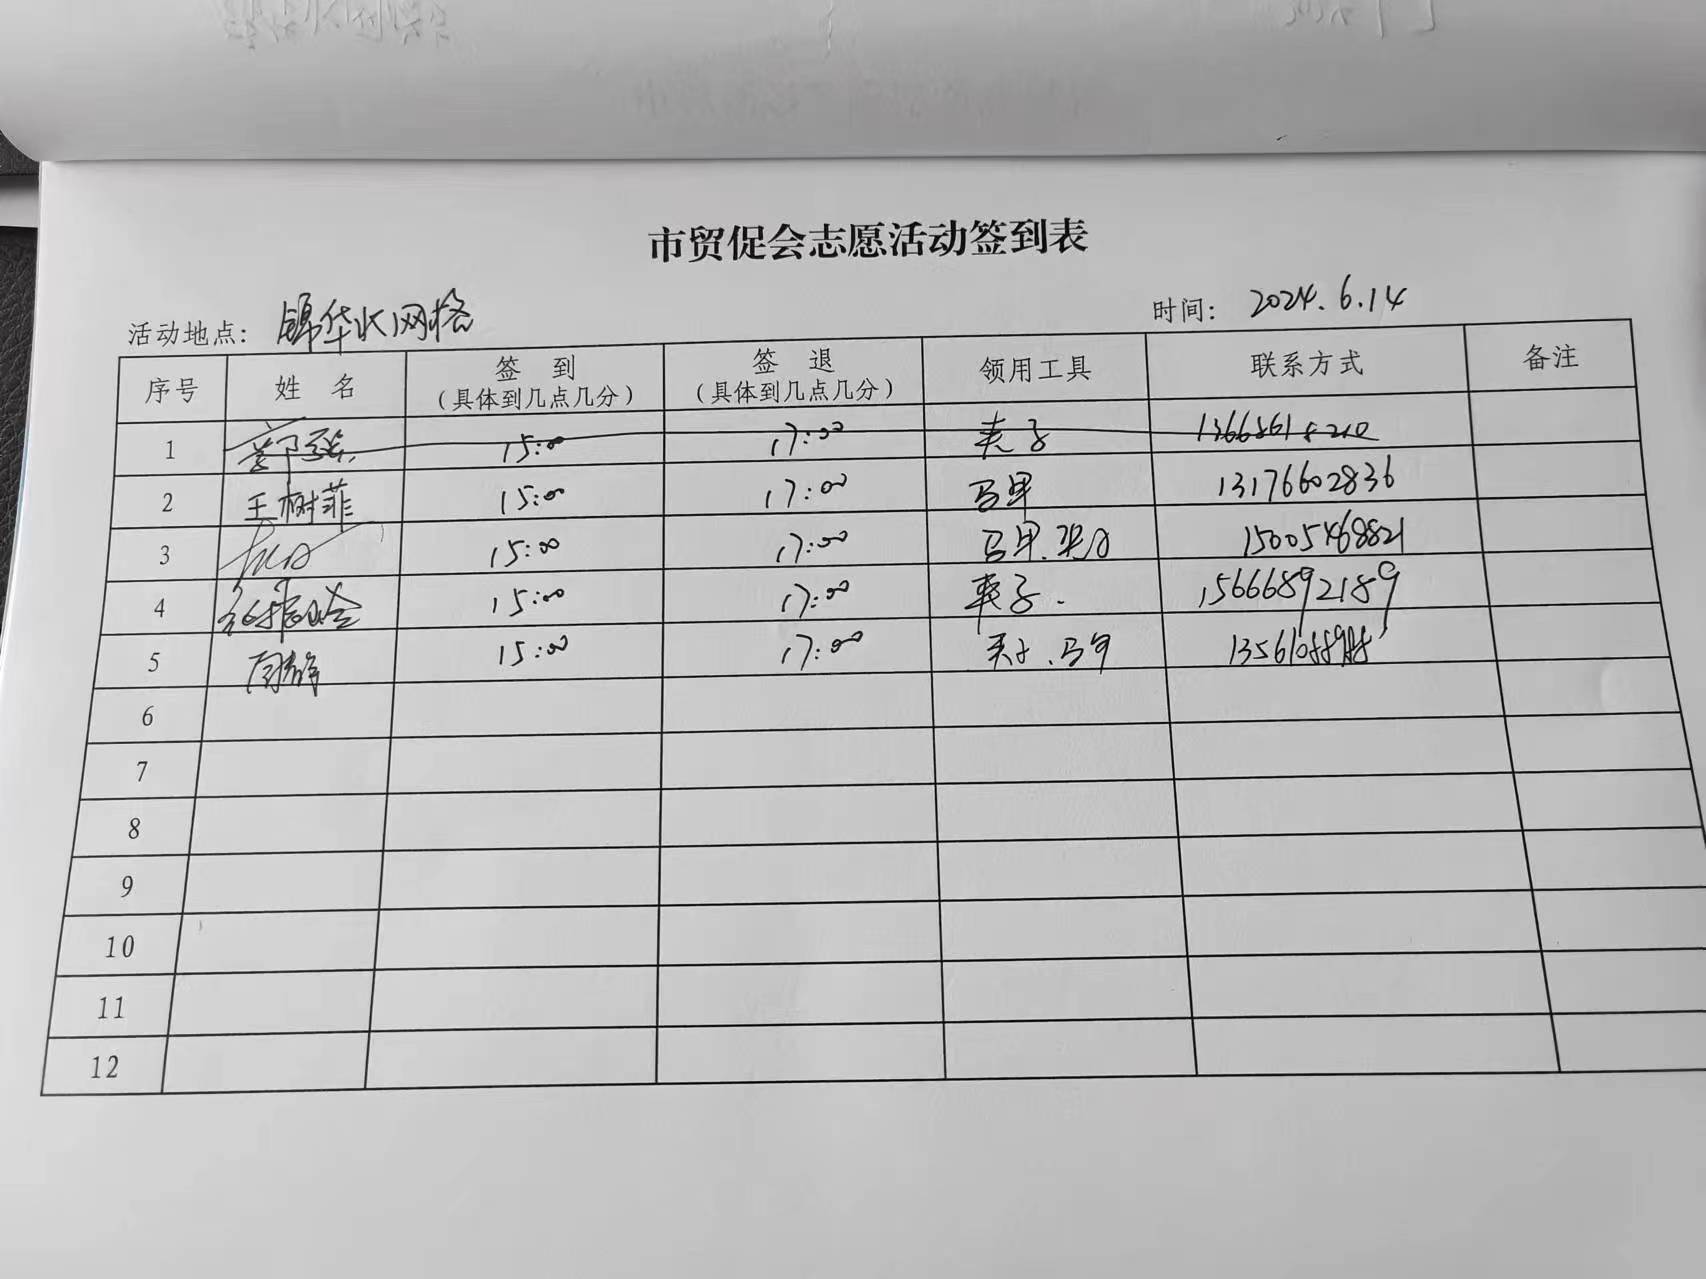 市贸促会志愿活动签到表
活动地点: 锦华北网格 时间: 2024.6.14
序号 姓 名 签 到 (具体到几点几分) 签 退 (具体到几点几分) 领用工具 联系方式 备注
1 15:00 17:00 夹子
2 王树菲 15:00 17:00 马甲 13176602836
3 15:00 17:00 马甲.夹子 15005468821
4 15:00 17:00 夹子. 15666892189
5 15:00 17:00 夹子.马甲
6
7
8
9
10
11
12